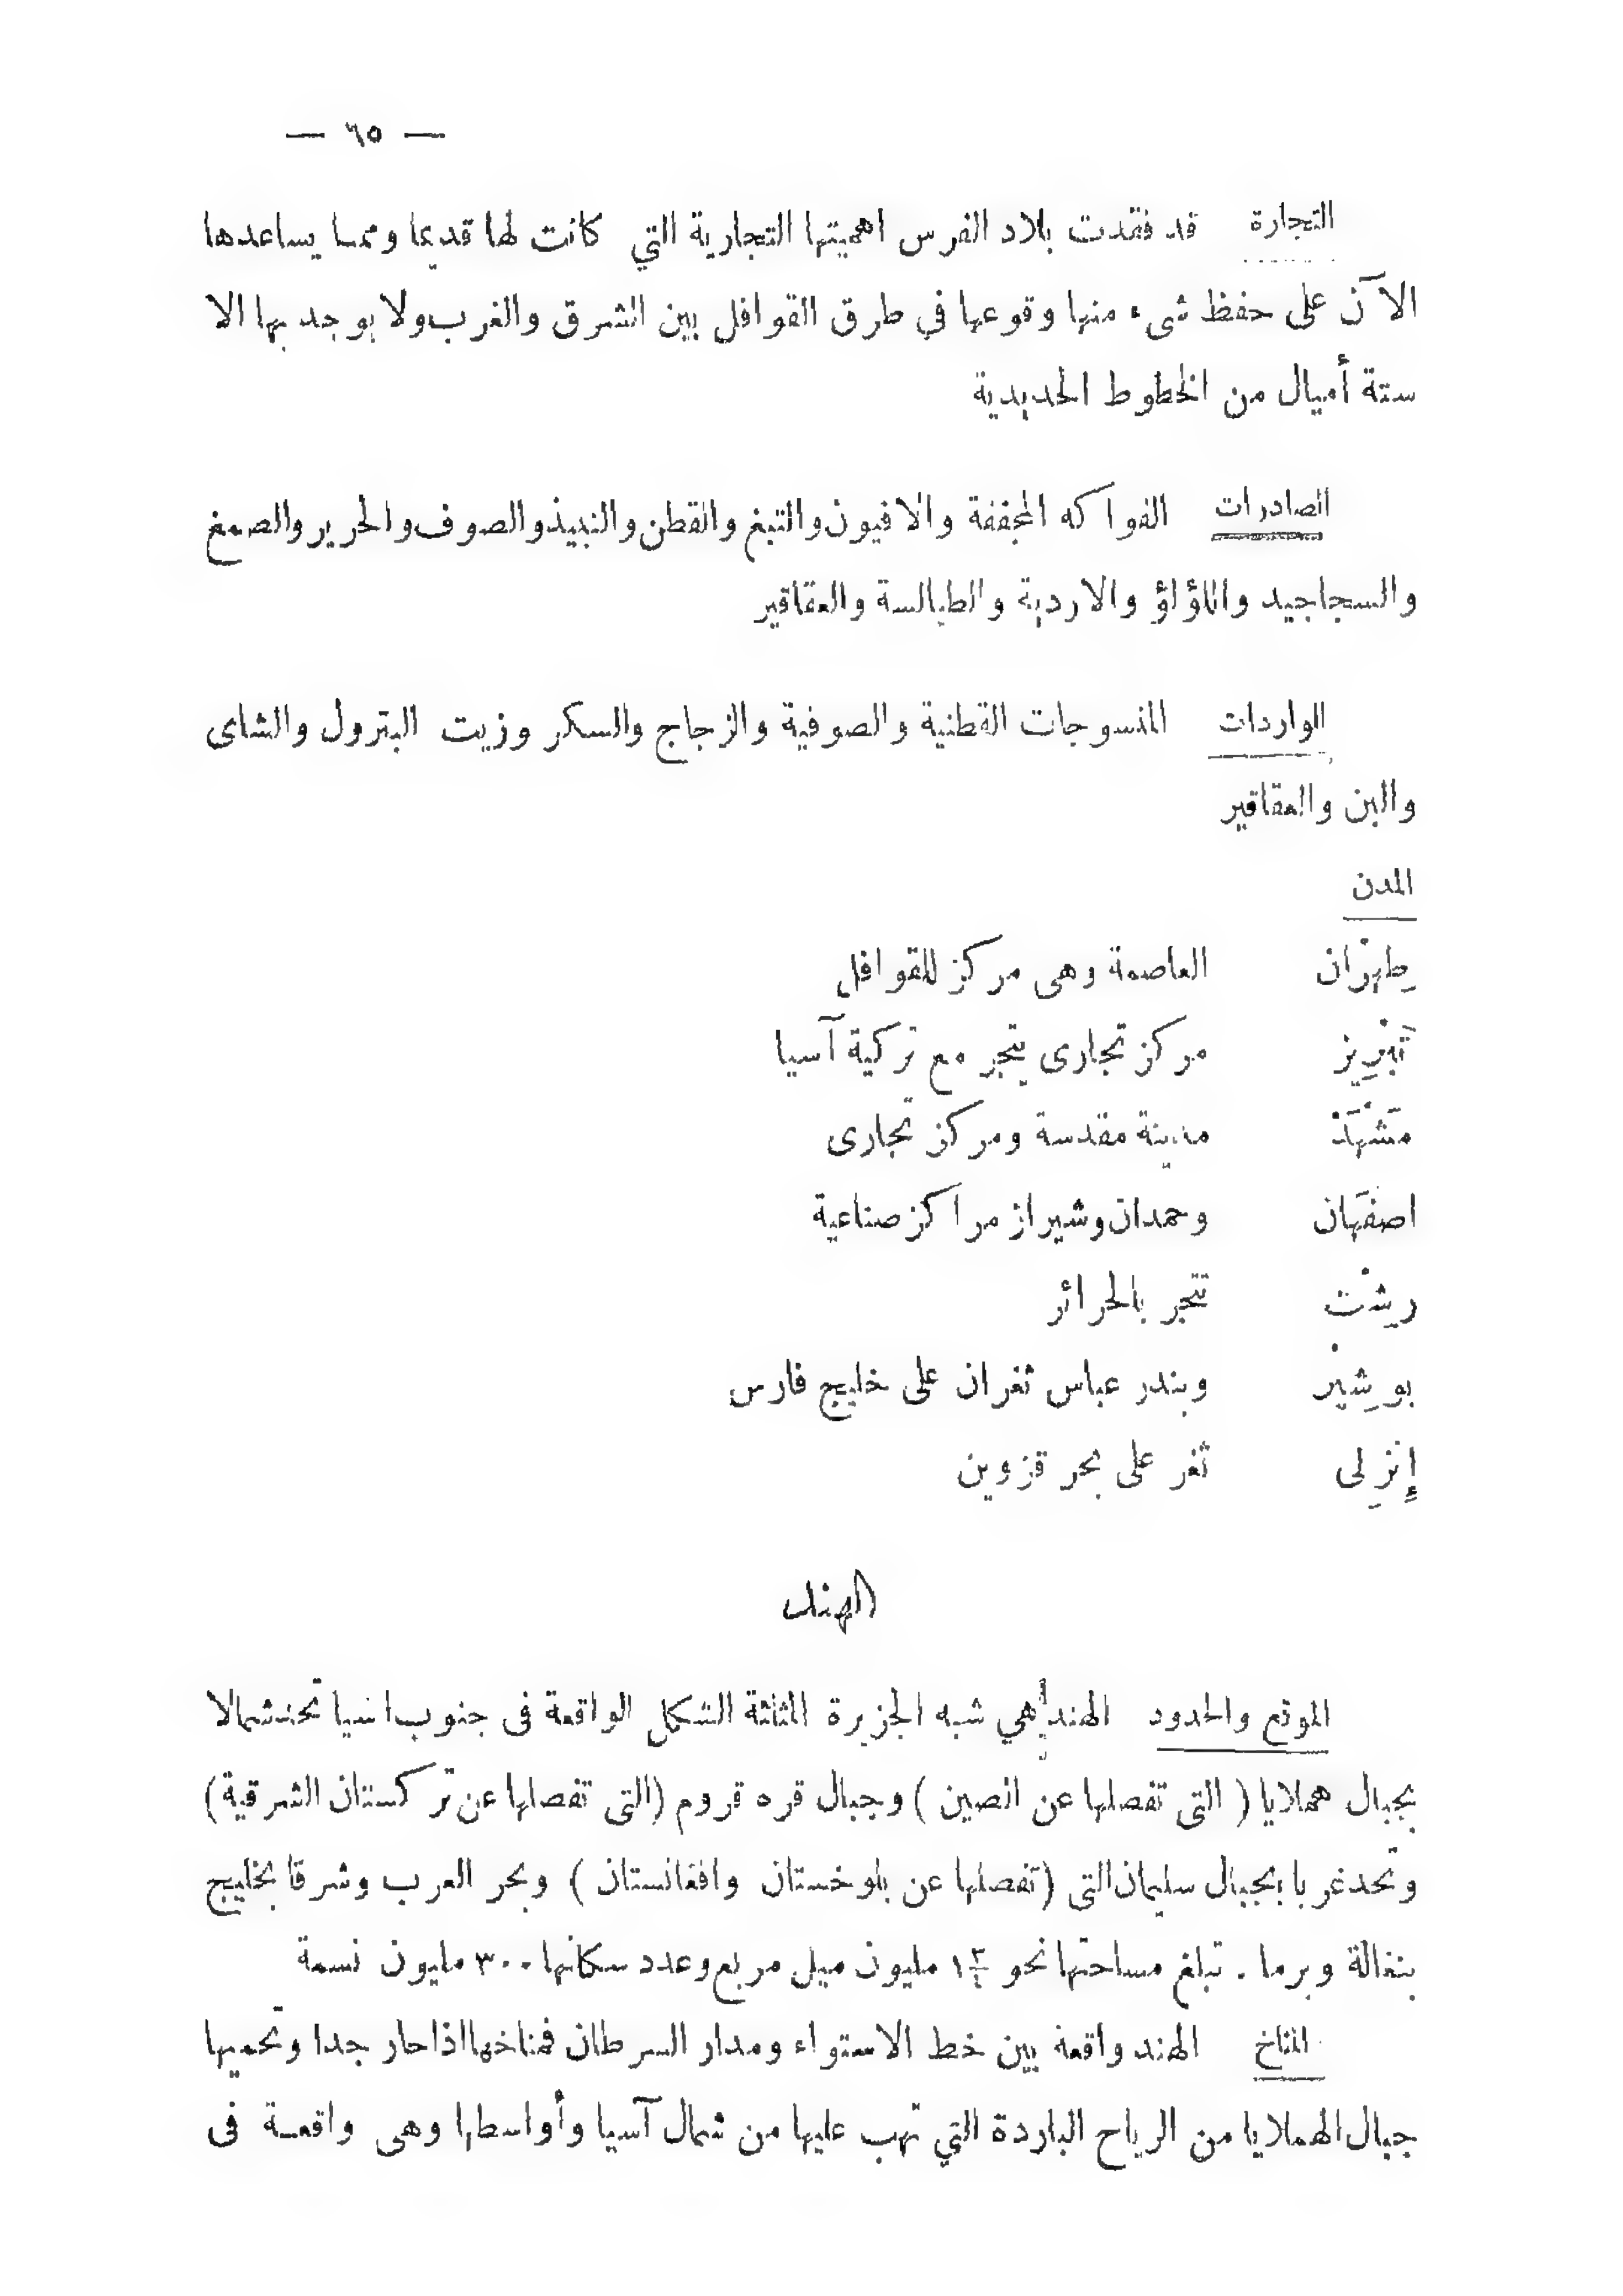 — ٦٥ —
التجارة قد فقدت بلاد الفرس اهميتها التجارية التي كانت لها قديما ومما يساعدها
الآن على حفظ شىء منها وقوعها في طرق القوافل بين الشرق والغرب ولا يوجد بها الا
ستة أميال من الخطوط الحديدية
الصادرات الفواكه المجففة والافيون والتبغ والقطن والنبيذ والصوف والحرير والصمغ
والسجاجيد واللؤلؤ والاردية والطيالسة والعقاقير
الواردات المنسوجات القطنية والصوفية والزجاج والسكر وزيت البترول والشاى
والبن والعقاقير
المدن
طِهْران العاصمة وهى مركز للقوافل
تَبْرِيز مركز تجارى يتجر مع تركية آسيا
مَشْهَدْ مدينة مقدسة ومركز تجارى
اصفَهان وحمدان وشيراز مراكز صناعية
رِشْت تتجر بالحرائر
بوشِيْر وبندر عباس ثغران على خليج فارس
إِنْزِلى ثغر على بحر قزوين
الهند
الموقع والحدود الهند هي شبه الجزيرة المثلثة الشكل الواقعة فى جنوب اسيا تحد شمالا
بجبال هملايا ( التى تفصلها عن الصين ) وجبال قره قروم (التى تفصلها عن تركستان الشرقية)
وتحد غربا بجبال سليمان التى (تفصلها عن بلوخستان وافغانستان ) وبحر العرب وشرقا بخليج
بنغالة وبرما . تبلغ مساحتها نحو ١٣/٤ مليون ميل مربع وعدد سكانها ٣٠٠ مليون نسمة
المناخ الهند واقعة بين خط الاستواء ومدار السرطان فمناخها اذا حار جدا وتحميها
جبال الهملايا من الرياح الباردة التي تهب عليها من شمال آسيا وأواسطها وهى واقعة فى